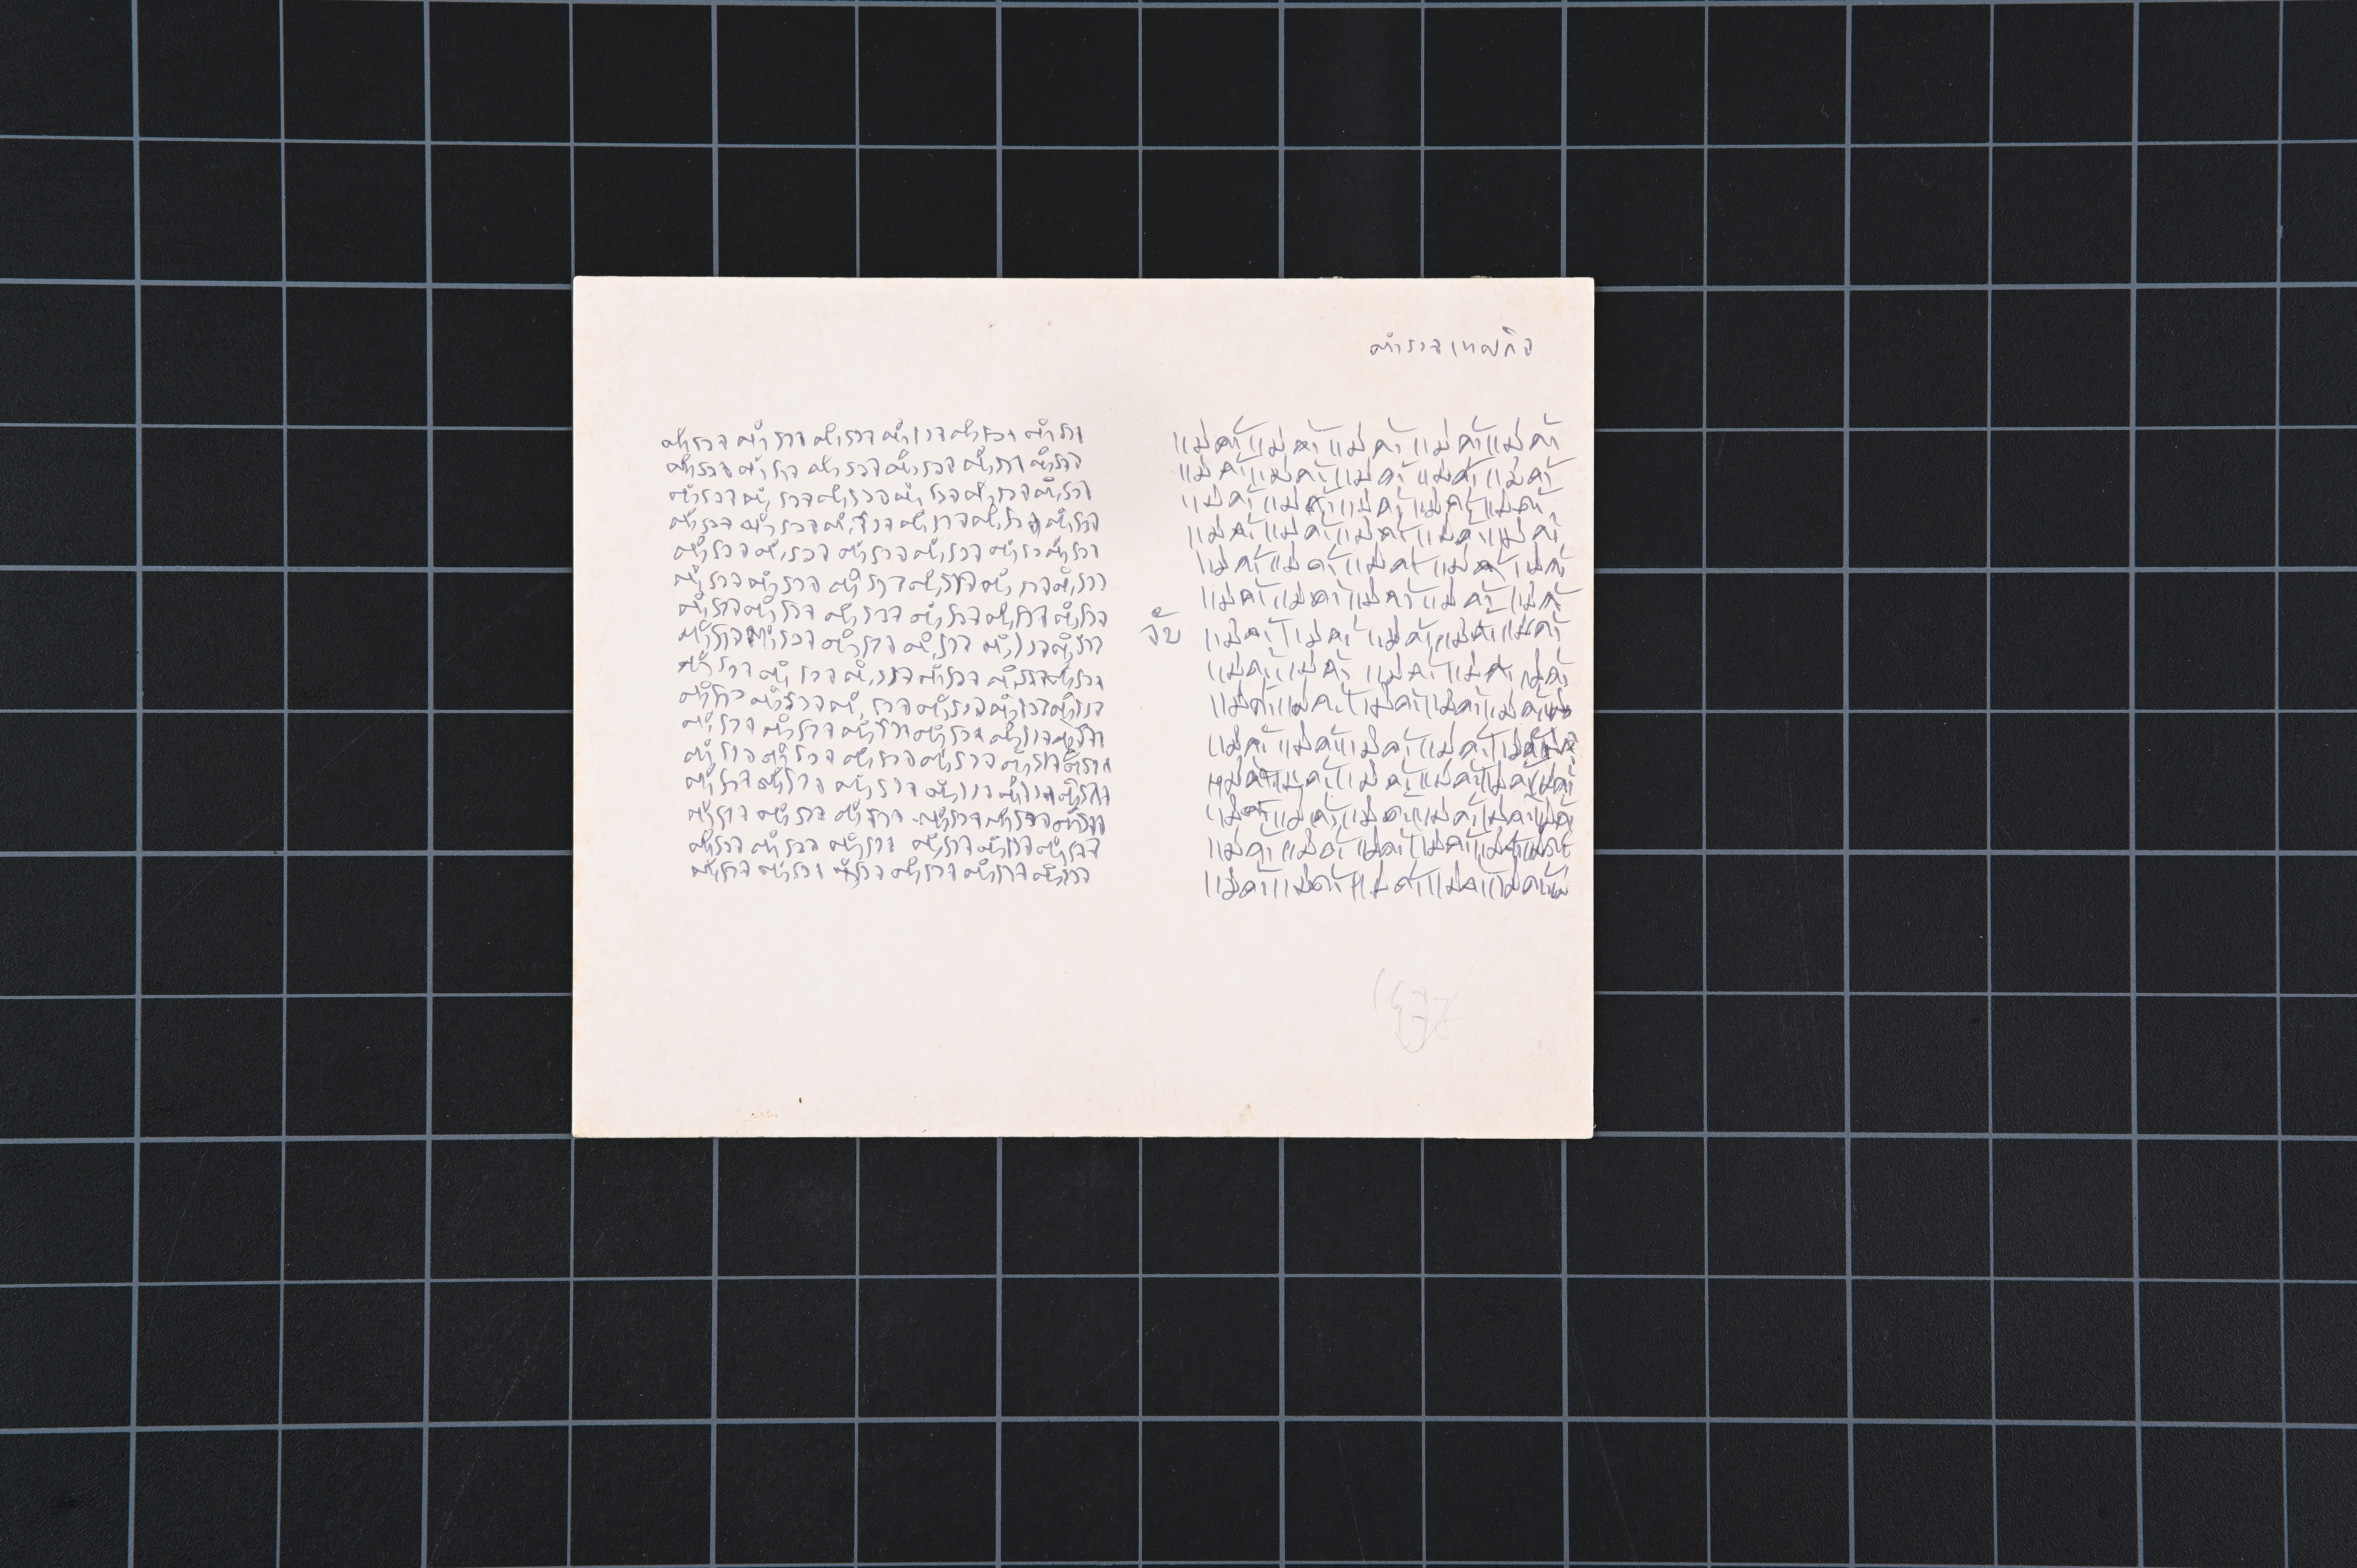 ตำรวจเทศกิจ
ตำรวจ ตำรวจ ตำรวจ ตำรวจ ตำรวจ ตำรวจ
ตำรวจ ตำรวจ ตำรวจ ตำรวจ ตำรวจ ตำรวจ
ตำรวจ ตำรวจ ตำรวจ ตำรวจ ตำรวจ ตำรวจ
ตำรวจ ตำรวจ ตำรวจ ตำรวจ ตำรวจ ตำรวจ
ตำรวจ ตำรวจ ตำรวจ ตำรวจ ตำรวจ ตำรวจ
ตำรวจ ตำรวจ ตำรวจ ตำรวจ ตำรวจ ตำรวจ
ตำรวจ ตำรวจ ตำรวจ ตำรวจ ตำรวจ ตำรวจ
ตำรวจ ตำรวจ ตำรวจ ตำรวจ ตำรวจ ตำรวจ
ตำรวจ ตำรวจ ตำรวจ ตำรวจ ตำรวจ ตำรวจ
ตำรวจ ตำรวจ ตำรวจ ตำรวจ ตำรวจ ตำรวจ
ตำรวจ ตำรวจ ตำรวจ ตำรวจ ตำรวจ ตำรวจ
ตำรวจ ตำรวจ ตำรวจ ตำรวจ ตำรวจ ตำรวจ
ตำรวจ ตำรวจ ตำรวจ ตำรวจ ตำรวจ ตำรวจ
ตำรวจ ตำรวจ ตำรวจ ตำรวจ ตำรวจ ตำรวจ
ตำรวจ ตำรวจ ตำรวจ ตำรวจ ตำรวจ ตำรวจ
ตำรวจ ตำรวจ ตำรวจ ตำรวจ ตำรวจ ตำรวจ
จับ
แม่ค้า แม่ค้า แม่ค้า แม่ค้า แม่ค้า
แม่ค้า แม่ค้า แม่ค้า แม่ค้า แม่ค้า
แม่ค้า แม่ค้า แม่ค้า แม่ค้า แม่ค้า
แม่ค้า แม่ค้า แม่ค้า แม่ค้า แม่ค้า
แม่ค้า แม่ค้า แม่ค้า แม่ค้า แม่ค้า
แม่ค้า แม่ค้า แม่ค้า แม่ค้า แม่ค้า
แม่ค้า แม่ค้า แม่ค้า แม่ค้า แม่ค้า
แม่ค้า แม่ค้า แม่ค้า แม่ค้า แม่ค้า
แม่ค้า แม่ค้า แม่ค้า แม่ค้า แม่ค้า
แม่ค้า แม่ค้า แม่ค้า แม่ค้า แม่ค้า
แม่ค้า แม่ค้า แม่ค้า แม่ค้า แม่ค้า แม่ค้า
แม่ค้า แม่ค้า แม่ค้า แม่ค้า แม่ค้า แม่ค้า
แม่ค้า แม่ค้า แม่ค้า แม่ค้า แม่ค้า แม่ค้า
แม่ค้า แม่ค้า แม่ค้า แม่ค้า แม่ค้า